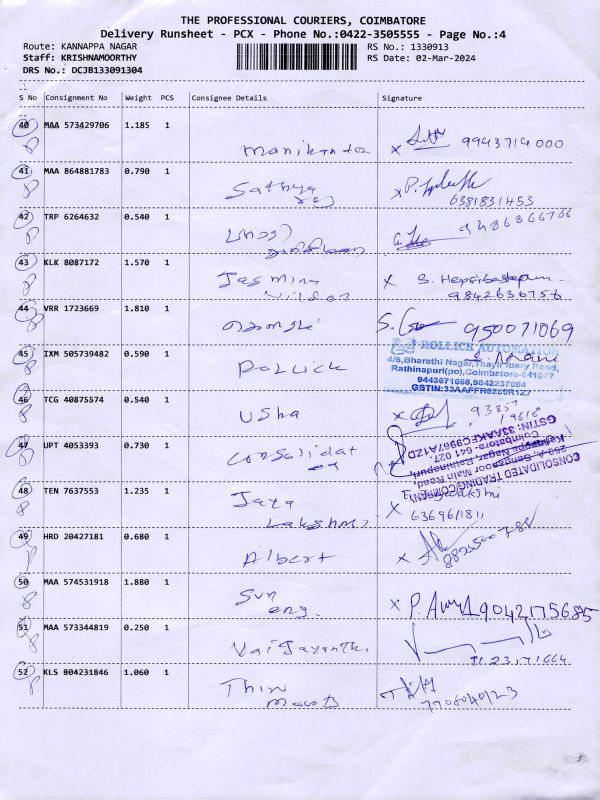 THE PROFESSIONAL COURIERS, COIMBATORE
Delivery Runsheet - PCX - Phone No.:0422-3505555 - Page No.:4
Route: KANNAPPA NAGAR RS No.: 1330913
Staff: KRISHNAMOORTHY RS Date: 02-Mar-2024
DRS No.: DCJB133091304
S No Consignment No Weight PCS Consignee Details Signature
40 MAA 573429706 1.185 1
manikandan x 9943714000
41 MAA 864881783 0.790 1
Sathya x P.
raj 6381831453
42 TRP 6264632 0.540 1
9486866766
43 KLK 8087172 1.570 1
Jasmine x S.
wilson 9842636756
44 VRR 1723669 1.810 1
S. 950071069
45 IXM 505739482 0.590 1
ROLLICK AUTOMATION
Rollick 4/6,Bharathi Nagar,Thayir Ittery Road,
Rathinapuri(po),Coimbatore-641027
9443671666,9842237884
GSTIN:33AAFFR8269R1Z7
46 TCG 40875574 0.540 1
Usha x 93857
19618
47 UPT 4053393 0.730 1
Consolidat
ed
CONSOLIDATED TRADING COMPANY
Sanganoor Main Road,
Nagar, Rathinapuri,
Coimbatore- 641 027.
GSTIN: 33AAKFC9967A1ZD
48 TEN 7637553 1.235 1
Jaya x
Lakshmi 6369611811
49 HRD 20427181 0.680 1
Albert x
50 MAA 574531918 1.880 1
Sun x P. 9042175685
eng.
51 MAA 573344819 0.250 1
Vaijayanthi
52 KLS 804231846 1.060 1
7706040123